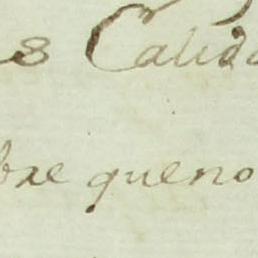 s Calida
bre queno